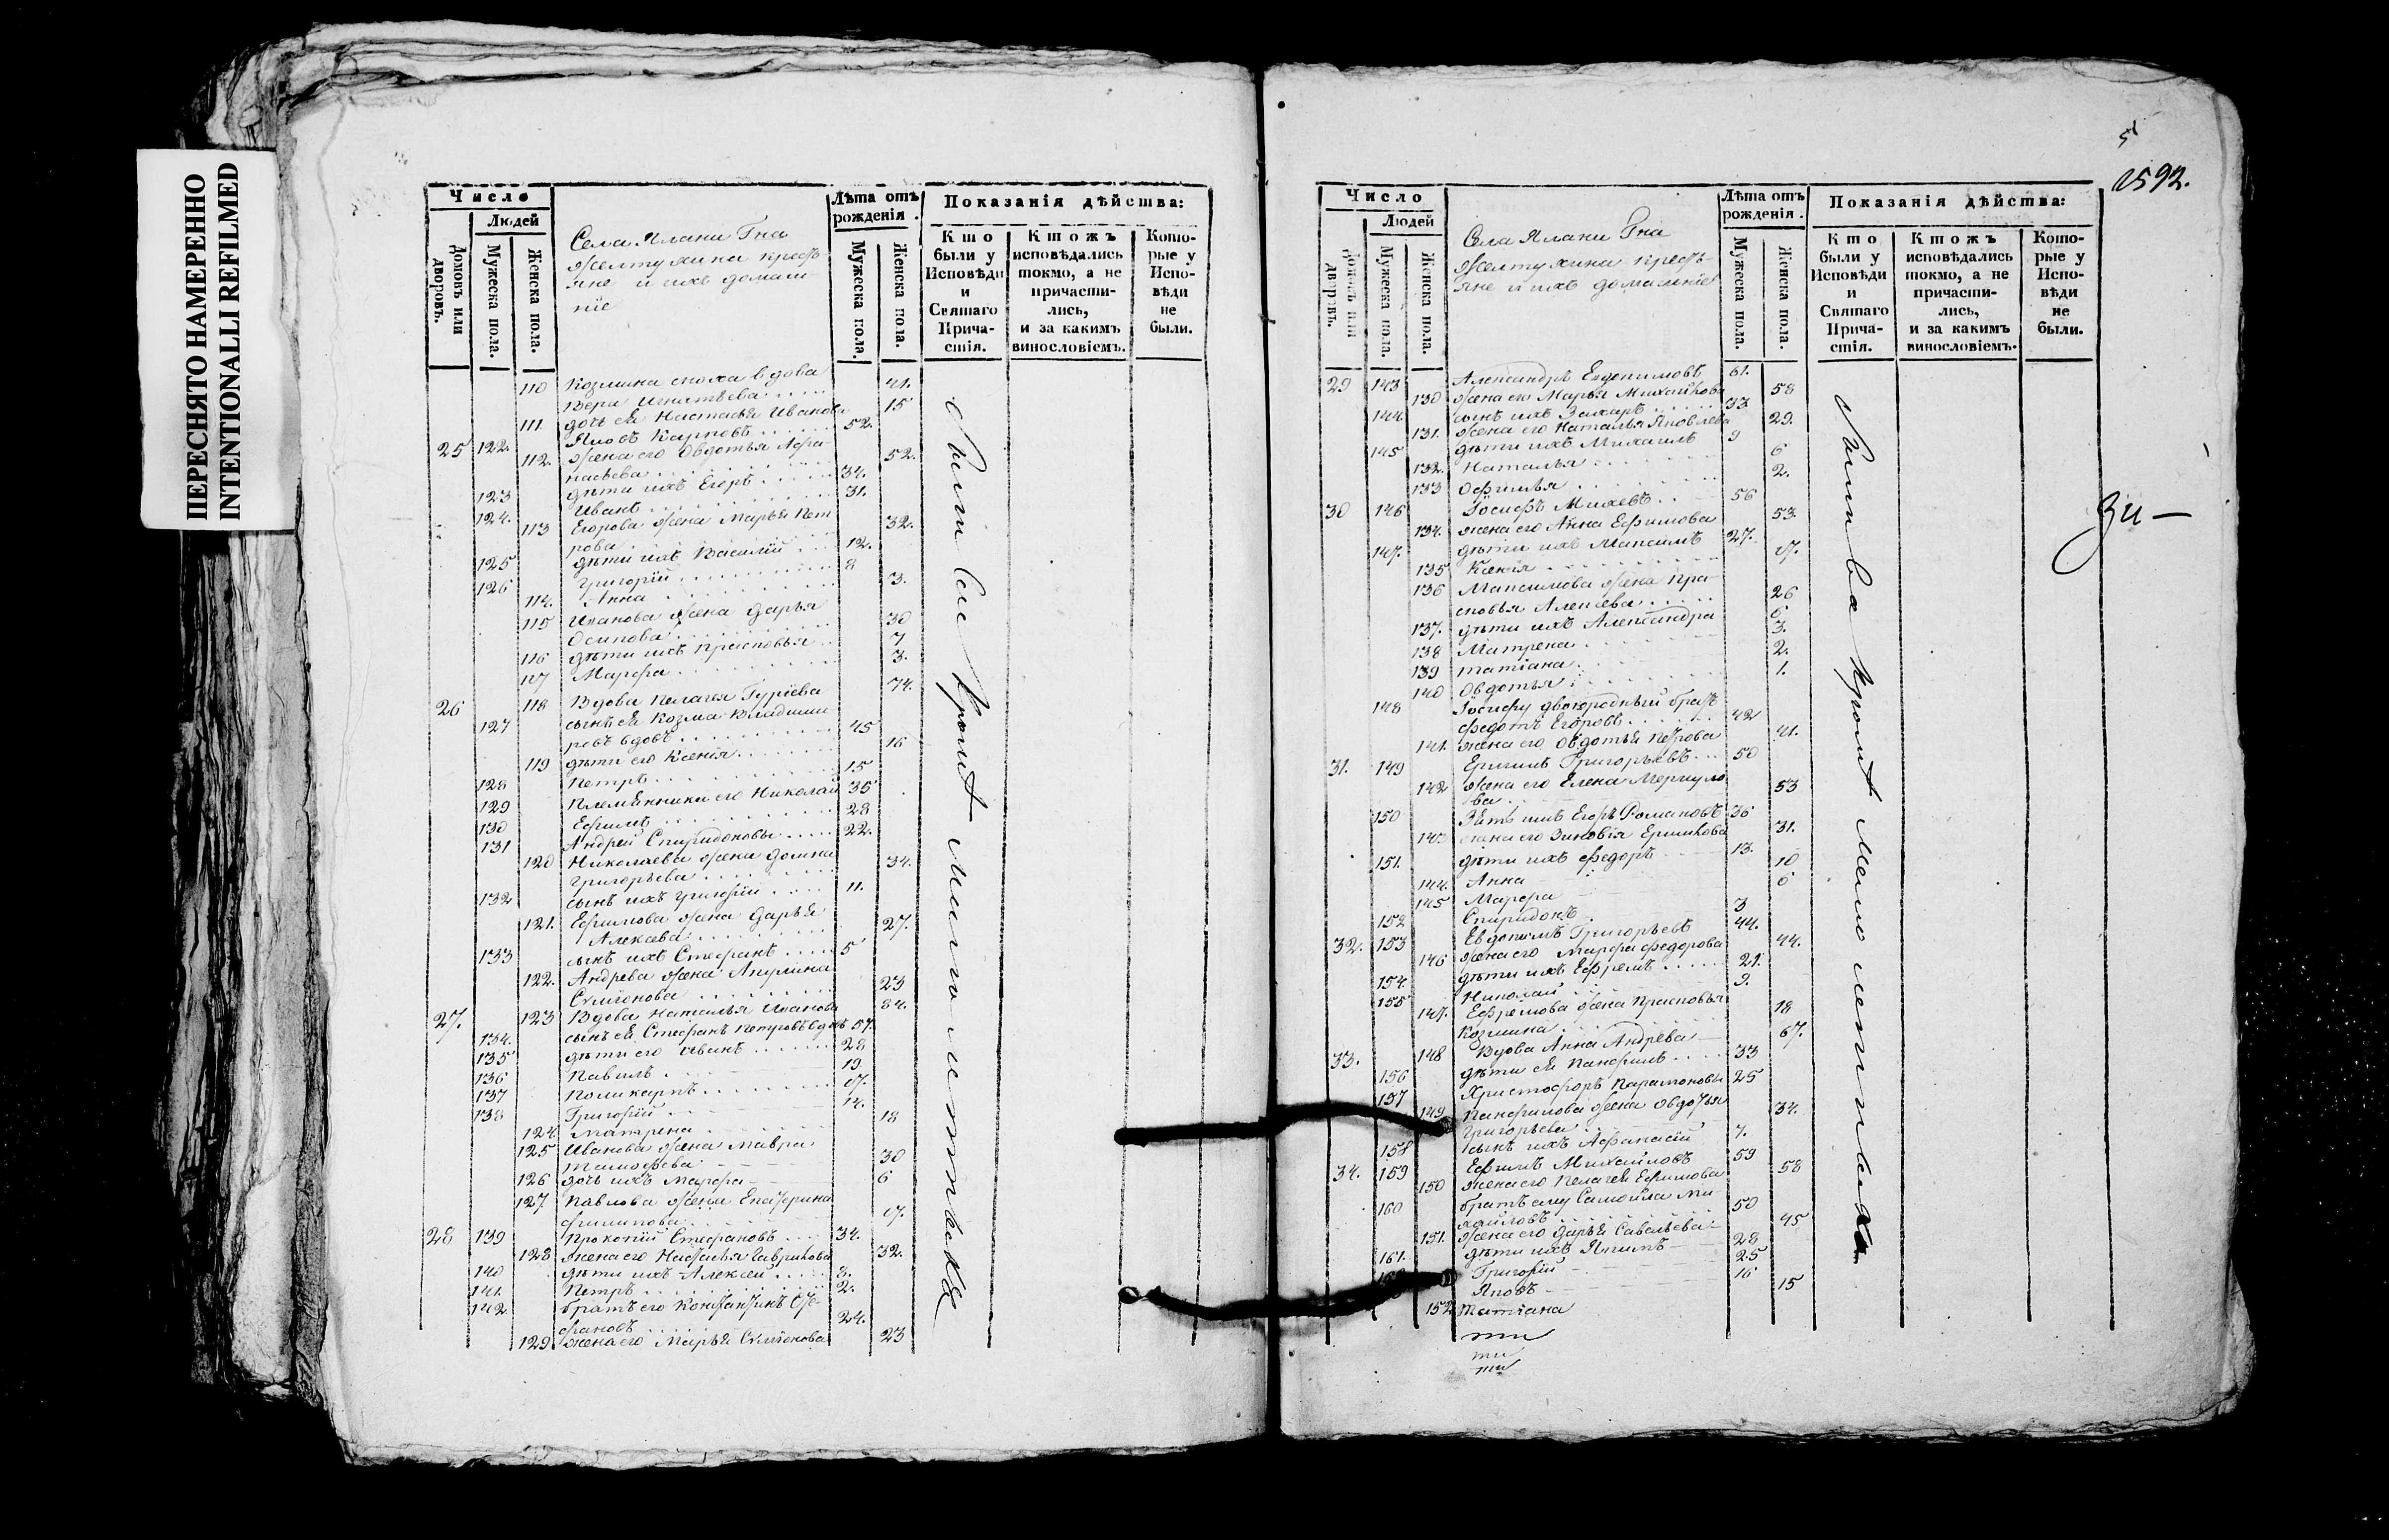 ПЕРЕСНЯТО НАМЕРЕННО
INTENTIONALLI REFILMED
Число
Людей
Домовъ или дворовъ.
Мужеска пола.
Женска пола.
Села Яланки Гна
Желтухина кресть
яне и ихъ домаш
ніе
Лѣта отъ рожденія.
Мужеска пола.
Женска пола.
Показанія дѣйства:
Кто были у Исповѣди и Святаго Прича-стія.
Ктожъ исповѣдались токмо, а не причасти-лись, и за какимъ винословіемъ.
Кото-рые у Испо-вѣди не были.
110 Козмина сноха вдова
Вера Игнатьева 41.
111 дочь ея Настасья Иванова 15
25 122. Яковъ Карповъ 52.
112. жена его Овдотья Афа-
насьева 52.
123 дѣти ихъ Егоръ 34.
124. Иванъ 31.
113 Егорова жена Марья Пет
рова 32.
125 дѣти ихъ Василій 12.
126 Григорій 8
114. Анна 3.
115 Иванова жена Дарья
Осипова 30
116 дѣти ихъ Прасковья 7
117 Марфа 3.
26 118 Вдова Пелагея Гуріева 74.
127 сынъ ея Козма Владими
ровъ вдовъ 45
119 дѣти его Ксенія 16
128 Петръ 15
129 Племянники его Николай 35
130 Ефимъ 28
131 Андрей Спиридоновы 22.
120 Николаева жена Домна
Григорьева 34.
132 сынъ ихъ Григорій 11.
121. Ефимова жена Дарья
Алексева 27.
133 сынъ ихъ Стефанъ 5
122. Андрева жена Акулина
Симіонова 23
27. 123 Вдова Наталья Иванова 84.
134. сынъ ея Стефанъ Петровъ вдовъ 57.
135 дѣти его Иванъ 28
136 Павилъ 19
137 Поликарпъ 17.
138 Григорій 14.
124. Матрена 18
125 Иванова жена Мавра
Тимофева 30
126 дочь ихъ Марфа 6
127. Павлова жена Екатерина
Филипова 17.
28 139 Прокопій Стефановъ 34.
128 жена его Настасья Гаврилова 32.
140 дѣти ихъ Алексей 8.
141. Петръ 2.
142. братъ его Константинъ Сте-
фановъ 24.
129 жена его Марья Симіонова 23
Были все кромѣ малолетнихъ
5
1592.
Число
Людей
Домовъ или дворовъ.
Мужеска пола.
Женска пола.
Села Яланки Гна
Желтухина кресть-
яне и ихъ домашніе
Лѣта отъ рожденія.
Мужеска пола.
Женска пола.
Показанія дѣйства:
Кто были у Исповѣди и Святаго Прича-стія.
Ктожъ исповѣдались токмо, а не причасти-лись, и за какимъ винословіемъ.
Кото-рые у Испо-вѣди не были.
29 143 Александръ Евдокимовъ 61.
130 жена его Марья Михайлова 58
144. сынъ ихъ Захаръ 33
131. жена его Наталья Яковлева 29.
145 дѣти ихъ Михаилъ 9
132. Наталья 6
133 Офимья 2.
30 146 Іосифъ Михевъ 56
134. жена его Анна Ефимова 53.
147. дѣти ихъ Максимъ 27.
135 Ксенія 17.
136 Максимова жена Пра-
сковья Алексева 26
137. дѣти ихъ Александра 6
138 Матрена 3.
139 Татіана 2.
140 Овдотья 1.
148 Іосифу двоюродный братъ
Федотъ Егоровъ 42
141. жена его Овдотья Петрова 41.
31. 149 Ермилъ Григорьевъ 50
142 жена его Елена Меркуло
ва 53
150 Зять ихъ Егоръ Романовъ 36
143 жена его Зиновія Ермилова 31.
151. дѣти ихъ Федоръ 13.
144. Анна 10
145 Марфа 6
152 Спиридонъ 3
32. 153 Евдокимъ Григорьевъ 44.
146 жена его Марфа Федорова 44.
154. дѣти ихъ Ефремъ 21.
155 Николай 9.
147. Ефремова жена Прасковья
Козмина 18
33. 148 Вдова Анна Андрева 67.
156 дѣти ея Панфилъ 33
157 Христофоръ Парамоновы 25
149 Панфилова жена Овдотья
Григорьева 34.
158 сынъ ихъ Афанасій 7.
34. 159 Ефимъ Михайловъ 59
150 жена его Пелагея Ефимова 58
160 братъ ему Самойла Ми
хайловъ 50
151. жена его Дарья Савельева 45
161. дѣти ихъ Якимъ 28
Григорій 25
Яковъ 16
152 Татіана 15